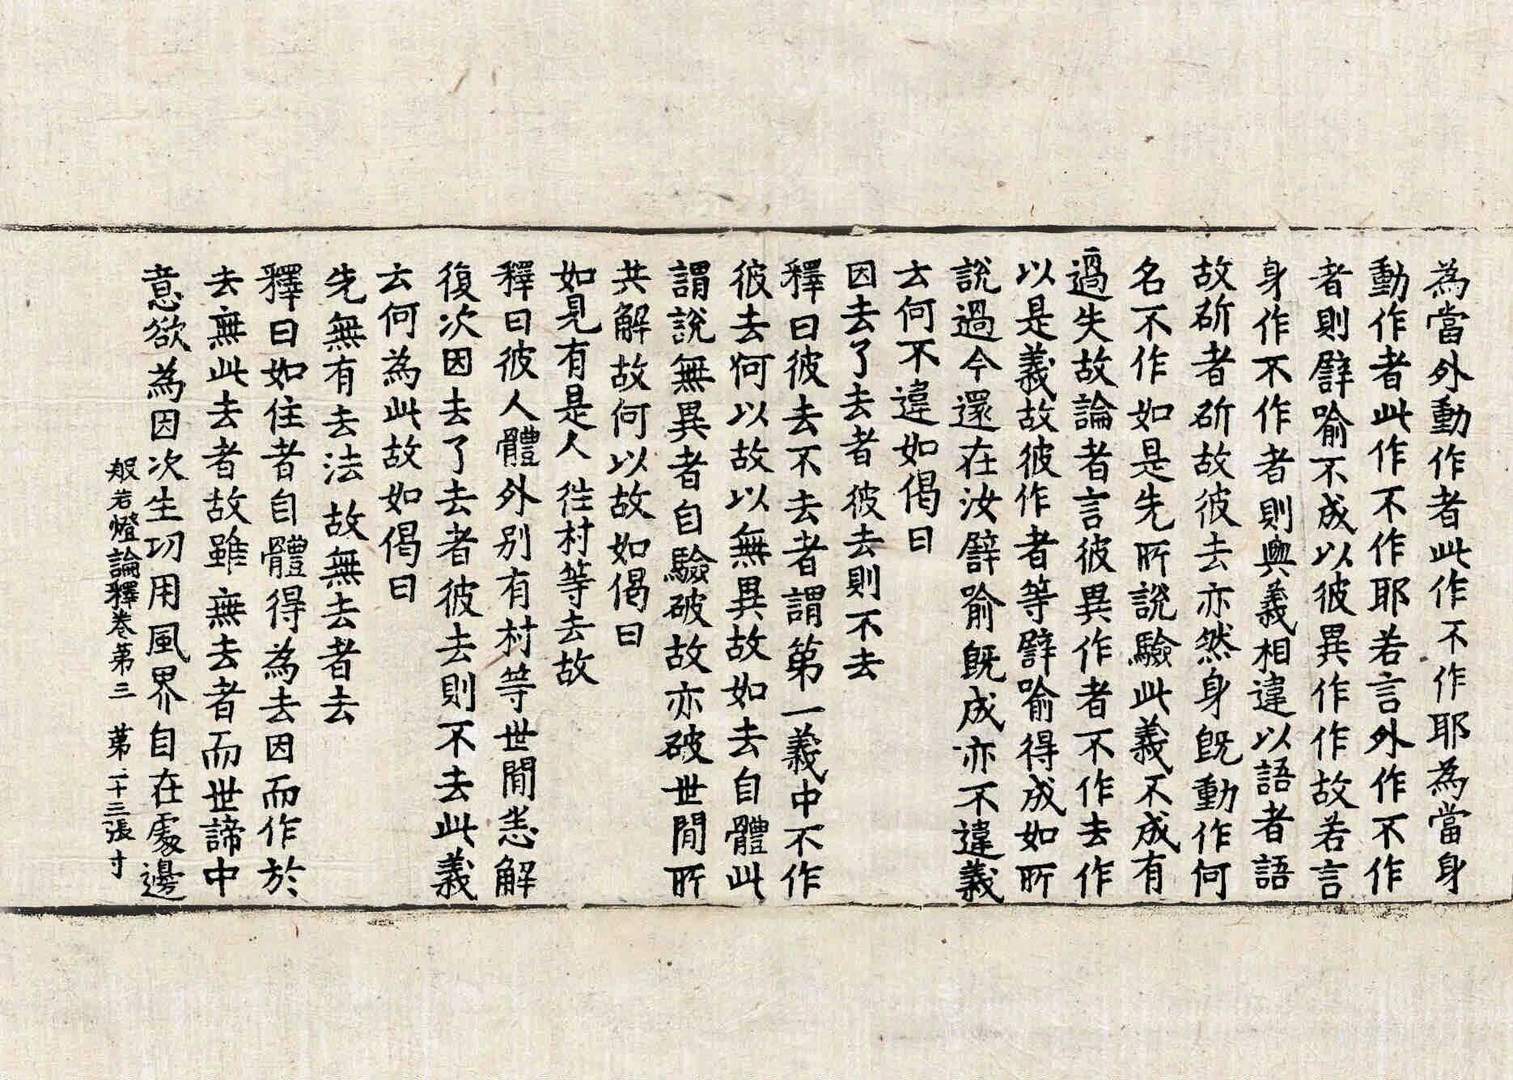 為當外動作者此作不作耶為當身
動作者此作不作耶若言外作不作
者則譬喻不成以彼異作作故若言
身作不作者則與義相違以語者語
故斫者斫故彼去亦然身旣動作何
名不作如是先所說驗此義不成有
過失故論者言彼異作者不作去作
以是義故彼作者等譬喻得成如所
說過今還在汝譬喻旣成亦不違義
云何不違如偈曰
因去了去者彼去則不去
釋曰彼去不去者謂第一義中不作
彼去何以故以無異故如去自體此
謂說無異者自驗破故亦破世間所
共解故何以故如偈曰
如見有是人往村等去故
釋曰彼人體外別有村等世間悉解
復次因去了去者彼去則不去此義
云何為此故如偈曰
先無有去法故無去者去
釋曰如住者自體得為去因而作於
去無此去者故雖無去者而世諦中
意欲為因次生功用風界自在處邊
般若燈論釋卷第三 第二十三張寸